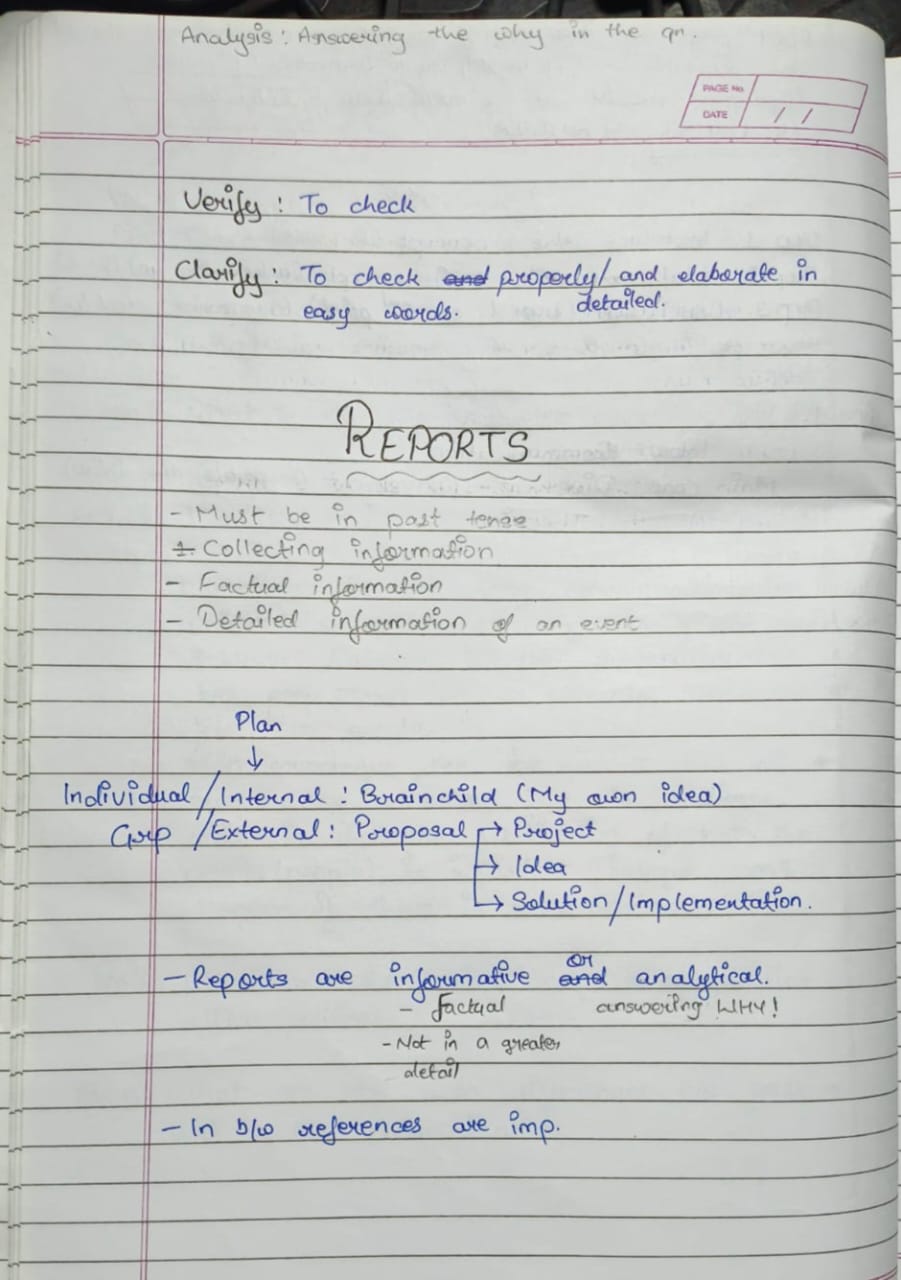 Analysis : Answering the why in the qn.
PAGE No.
DATE / /
Verify : To check
Clarify : To check and properly/ and elaborate in
easy words. detailed.
REPORTS
- Must be in past tense
1. Collecting information
- Factual information
- Detailed information of an event
Plan
↓
Individual / Internal : Brainchild (My own idea)
Grp / External : Proposal → Project
→ Idea
→ Solution / Implementation.
or
- Reports are informative and analytical.
- factual answering WHY!
- Not in a greater
detail
- In b/w references are imp.